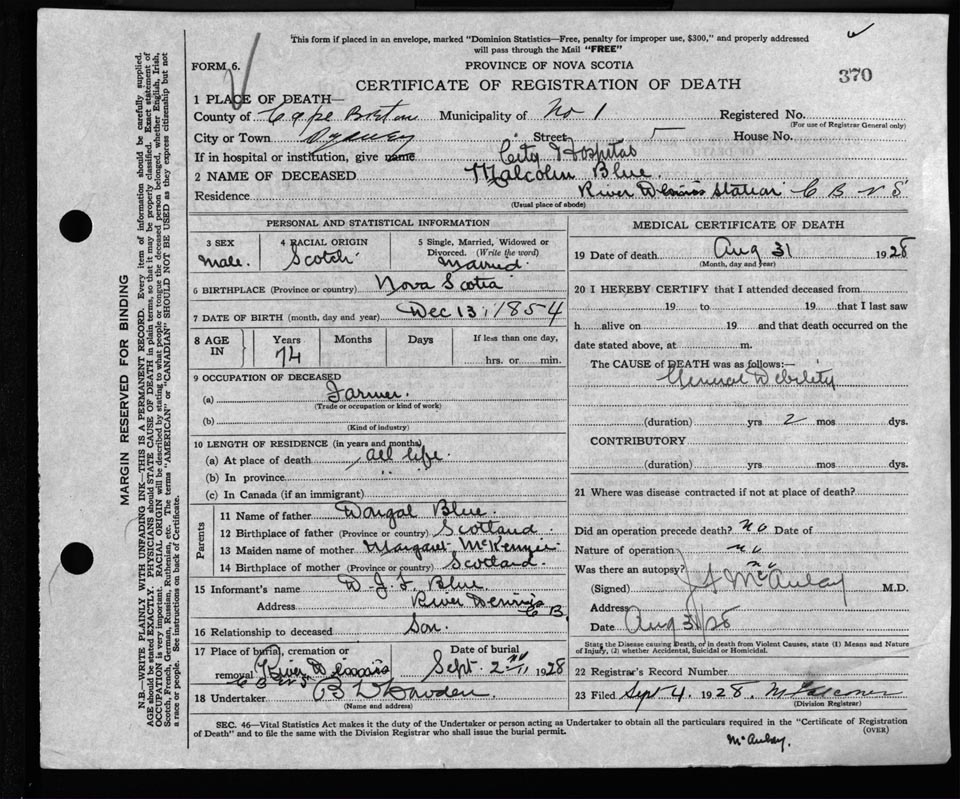 This form if placed in an envelope, marked "Dominion Statistics—Free, penalty for improper use, $300," and properly addressed
will pass through the Mail "FREE"
FORM 6.
PROVINCE OF NOVA SCOTIA
370
CERTIFICATE OF REGISTRATION OF DEATH
1 PLACE OF DEATH—
County of Cape Breton Municipality of No 1 Registered No.
(For use of Registrar General only)
City or Town Sydney Street House No.
If in hospital or institution, give name City Hospital
2 NAME OF DECEASED Malcolm Blue.
Residence River Dennis Station C B N S
(Usual place of abode)
PERSONAL AND STATISTICAL INFORMATION
3 SEX 4 RACIAL ORIGIN 5 Single, Married, Widowed or
Divorced. (Write the word)
Male. Scotch Married.
6 BIRTHPLACE (Province or country) Nova Scotia
7 DATE OF BIRTH (month, day and year) Dec 13, 1854
8 AGE IN Years Months Days If less than one day,
74 hrs. or min.
9 OCCUPATION OF DECEASED
(a) Farmer.
(Trade or occupation or kind of work)
(b)
(Kind of industry)
10 LENGTH OF RESIDENCE (in years and months)
(a) At place of death all life.
(b) In province "
(c) In Canada (if an immigrant)
Parents
11 Name of father Dougal Blue.
12 Birthplace of father (Province or country) Scotland.
13 Maiden name of mother Margaret McKenzie
14 Birthplace of mother (Province or country) Scotland.
15 Informant's name D. J. F. Blue.
Address River Dennis
C B.
16 Relationship to deceased Son.
17 Place of burial, cremation or Date of burial
removal River Dennis Sept. 2nd, 1928
18 Undertaker
(Name and address)
MEDICAL CERTIFICATE OF DEATH
19 Date of death Aug 31 1928
(Month, day and year)
20 I HEREBY CERTIFY that I attended deceased from
19 to 19 that I last saw
h alive on 19 and that death occurred on the
date stated above, at m.
The CAUSE of DEATH was as follows:—
General Debility
(duration) yrs 2 mos dys.
CONTRIBUTORY
(duration) yrs mos dys.
21 Where was disease contracted if not at place of death?
Did an operation precede death? no Date of
Nature of operation no
Was there an autopsy? no
(Signed) McAulay M.D.
Address
Date Aug 31/28
State the Disease causing Death, or in death from Violent Causes, state (1) Means and Nature
of Injury, (2) whether Accidental, Suicidal or Homicidal.
22 Registrar's Record Number
23 Filed Sept 4. 1928.
(Division Registrar)
SEC. 46—Vital Statistics Act makes it the duty of the Undertaker or person acting as Undertaker to obtain all the particulars required in the "Certificate of Registration
of Death" and to file the same with the Division Registrar who shall issue the burial permit. (OVER)
McAulay.
MARGIN RESERVED FOR BINDING
N.B.—WRITE PLAINLY WITH UNFADING INK—THIS IS A PERMANENT RECORD. Every item of information should be carefully supplied.
AGE should be stated EXACTLY. PHYSICIANS should STATE CAUSE OF DEATH in plain terms, so that it may be properly classified. Exact statement of
OCCUPATION is very important. RACIAL ORIGIN will be described by stating to what people or tongue the deceased person belonged, whether English, Irish,
Scotch, French, German, Russian, Ruthenian, etc. The terms "AMERICAN" or "CANADIAN" SHOULD NOT BE USED as they express citizenship but not
a race or people. See instructions on back of Certificate.